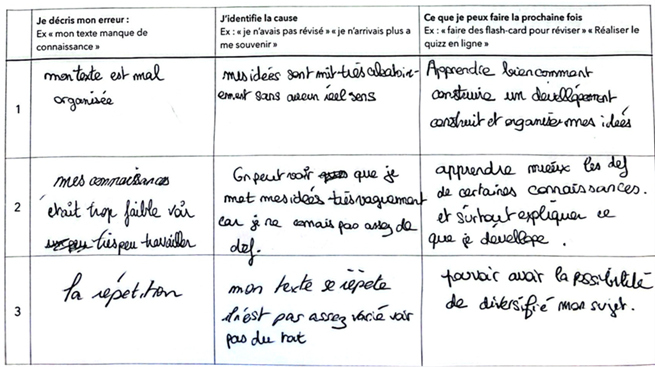 Je décris mon erreur :
Ex « mon texte manque de
connaissance »
J'identifie la cause
Ex : « je n'avais pas révisé » « je n'arrivais plus a
me souvenir »
Ce que je peux faire la prochaine fois
Ex : « faire des flash-card pour réviser » « Réaliser le
quizz en ligne »
1
mon texte est mal
organisée
mes idées sont mit très aléatoir-
ement sans aucun réel sens
Apprendre bien comment
construire un dévellépement
construit et organiser mes idées
2
mes connaissances
était trop faible voir
très peu travailler
On peut voir que je
met mes idées très vaguement
car je ne connais pas assez de
def.
apprendre mieux les def
de certaines connaissances.
et surtout expliquer ce
que je dévellope.
3
la répétition
mon texte se répète
il n'est pas assez varié voir
pas du tout
pouvoir avoir la possibilité
de diversifié mon sujet.